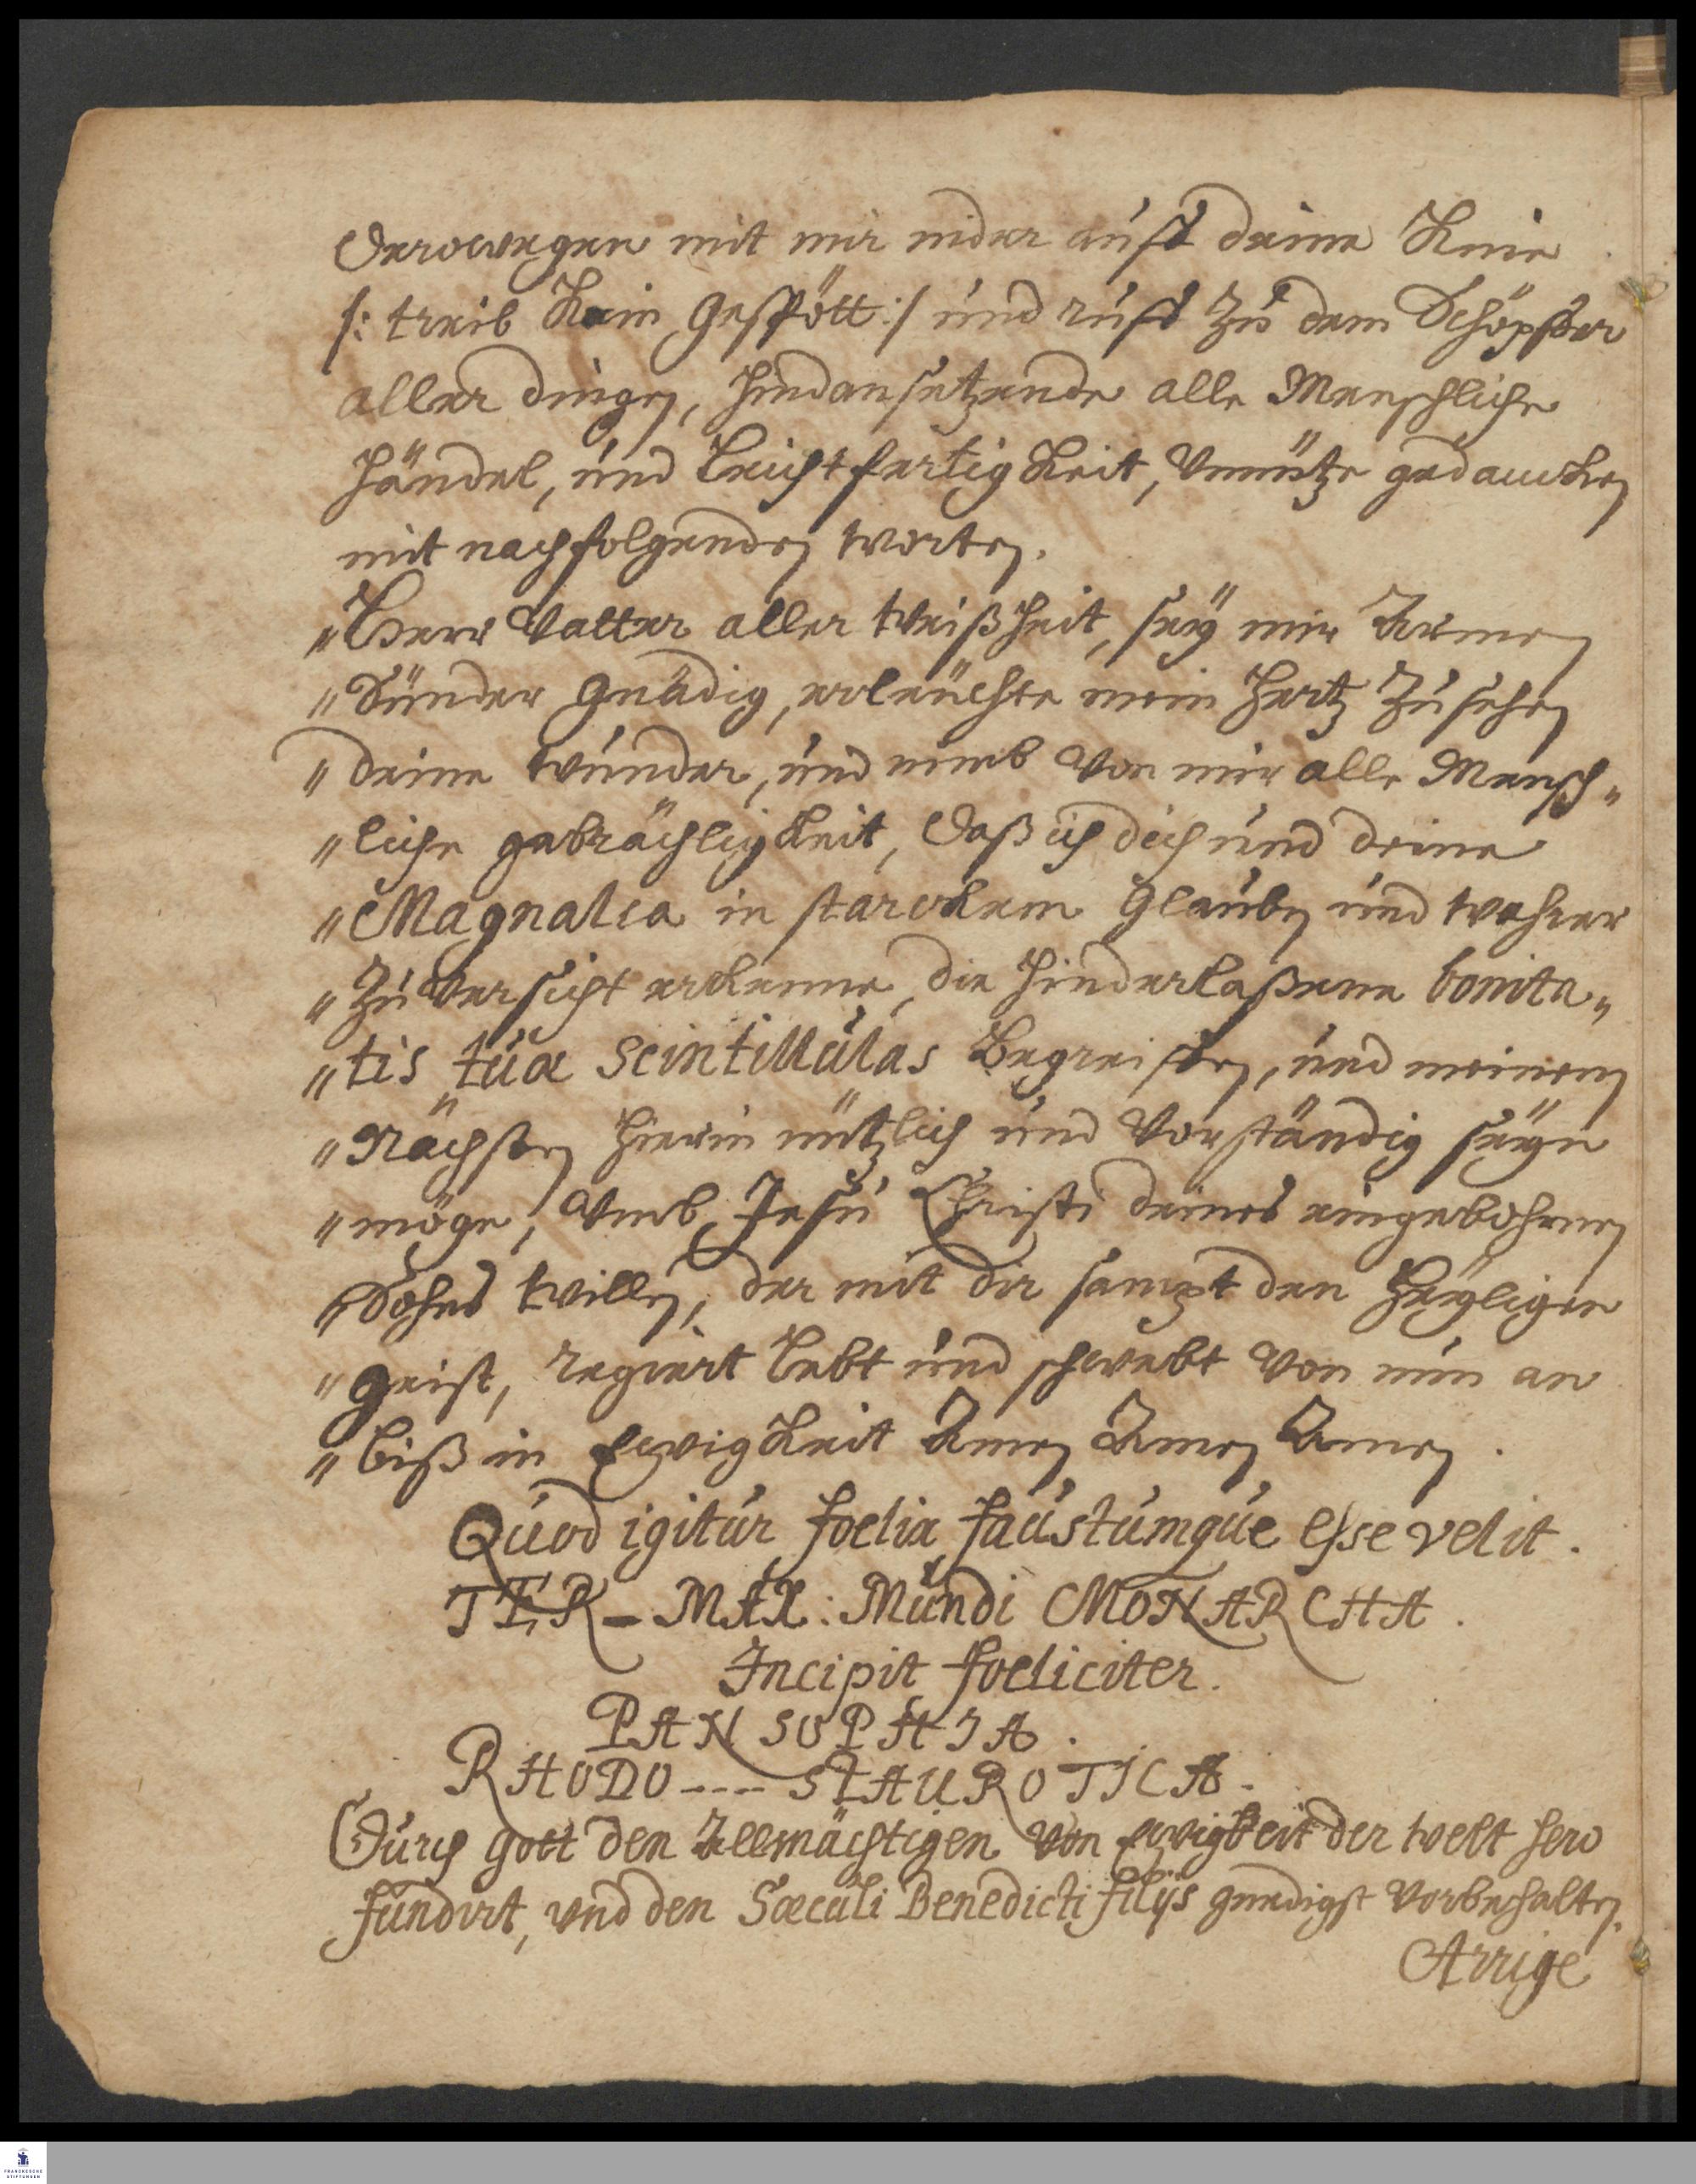 Derowegen mit mir nider auff deine Knie
/: treib Kein Gespött :/ und ruff Zu dem Schöpffer
aller dingen, hindansetzende alle Menschliche
händel, und Leichtfertigkeit, Vnnütze gedancken
mit nachfolgenden worten.
„Herr Vatter aller Weißheit, seÿ mir Armen
„Sünder Gnädig, erleüchte mein Hertz Zu sehen
„deine Wunder, und nimb Von mir alle Mensch„
„liche gebrächligkeit, Daß ich dich und deine
„Magnalia in starckem Glauben und wahrer
„ZuVersicht erkenne, die hinderlaßene bonita„
„tis tuæ scintillulas Begreiffen, und meinem
„Nächsten hierin nützlich und Vorständig seÿn
„möge, Vmb Jesu Christi deines eingebohrnen
„Sohns willen, der mit dir sampt den Heÿligen
„Geist, regiert Lebt und schwebt Von nun an
„biß in Ewigkeit Amen Amen Amen.
Quod igitur foelix faustumque esse velit.
TER-MAX: Mundi MONARCHA.
Incipit foeliciter.
PANSOPHIA.
RHODO---- STAUROTICA.
Durch Gott den Allmächtigen Von Ewigkeit der Welt hero
fundirt, vnd den Sæculi Benedicti filÿs gnedigst Vorbehalten.
Arrige
FRANCKESCHE
STIFTUNGEN